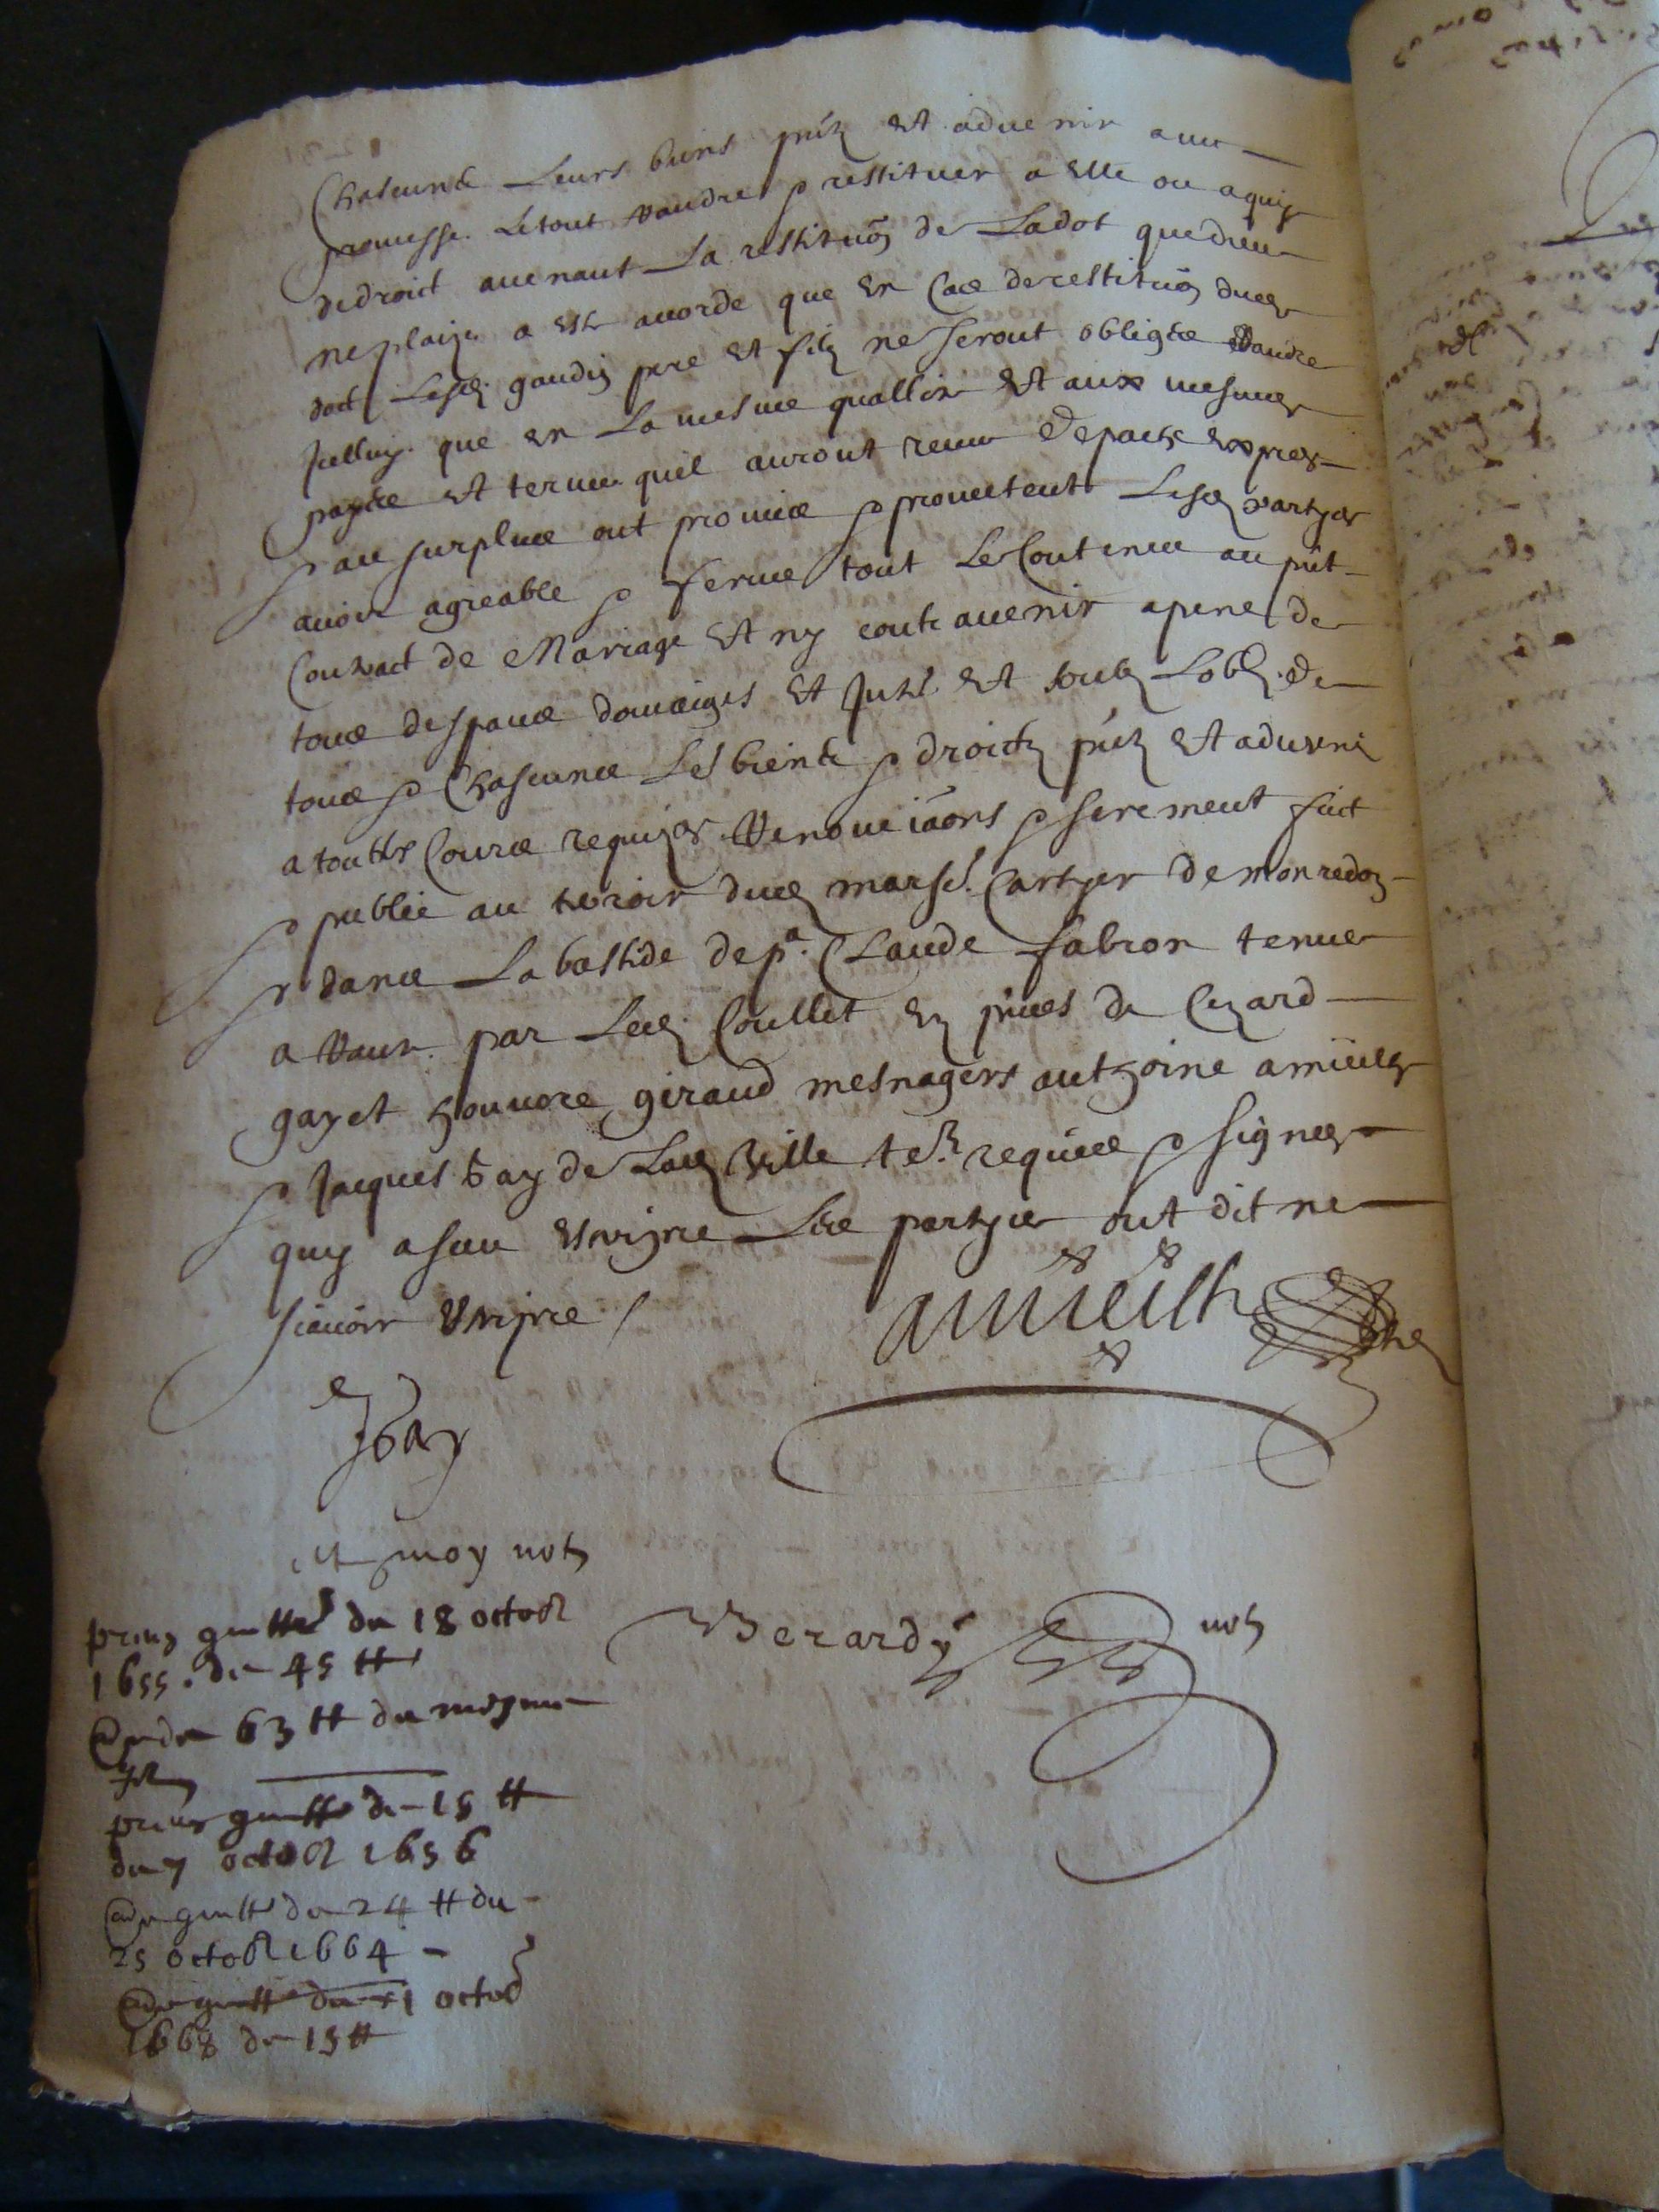 Chascunde Leurs biens pntz Et aduenir auec
promesse Letout Randre & restituer a Elle ou aquy
dedroict auenant La restitu͠on de Ladot quedieu
neplaize a Este acorde que En Cas derestitu͠on dud
dot Lesd gaudin pere Et filz ne seront obligés Randre
Jcelluy que En La mesme quallite Et aux mesmes
payes Et termes quil auront receu de pacte Expres
& au surplus ont promis & prometent Lesd partyes
auoir agreable & ferme tout Le Contenu au pnt
Contract de Mariage Et ny contrauenir apene de
tous despans domaiges Et Jntz Et soubz Lobl de
tous & Chascuns Les biens & droictz pntz Et aduenir
a toutes Cours requizes Renonciaons & serement faict
& publié au teroir dud marse Cartyer demonredon
& dans Labastide de Claude fabron tenue
a par Led Coullet En pnces de Cezard
gayet honnore giraud mesnagers anthoine amieilh
& Jacques bay de Lad Ville tes requis & signes
quy a sceu Escripre Les partyes ont dit ne
scauoir Escripre /
amieilh
J bay
Et moy not
Berardy not
quitte du 18 octob
1655 . de 45 tt
de 63 tt du mesme
jour
quitte de 15 tt
du 7 octob 1656
quitte de 24 tt du
25 octob 1664
quitte du octob
1668 de 15 tt